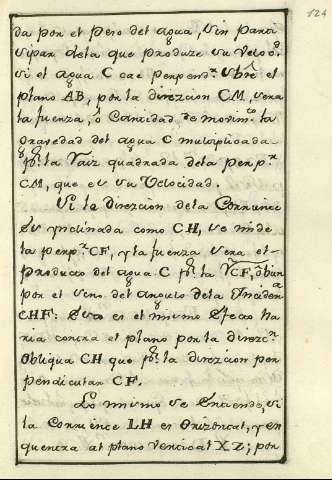 124
da por el peso del agua, sin parti
sipar dela que produze su Veloc.d
si el agua C cae perpend.r Sbrê el
plano AB, por la direzcion CM, sera
la fuerza, ô Cantidad de movim.to la
Gravedad del agua C multiplicada
p.r la Raiz quadrada dela perp.r
CM, que es su Velocidad.
Si la Direzcion dela Corriente
es ynclinada como CH, se mide
la perp.r CF, y la fuerza sera el
producto del agua C p.r la VCF, ô bien
por el seno del angulo dela Inciden.a
CHF: Esto es el mismo Efecto ha
ria contra el plano por la direzc.n
Obliqua CH que p.r la direzcion per
pendicular CF.
Lo mismo se entiende, si
la Corriente LH es Orizontal, y en
quentra al plano Vertical XZ; por